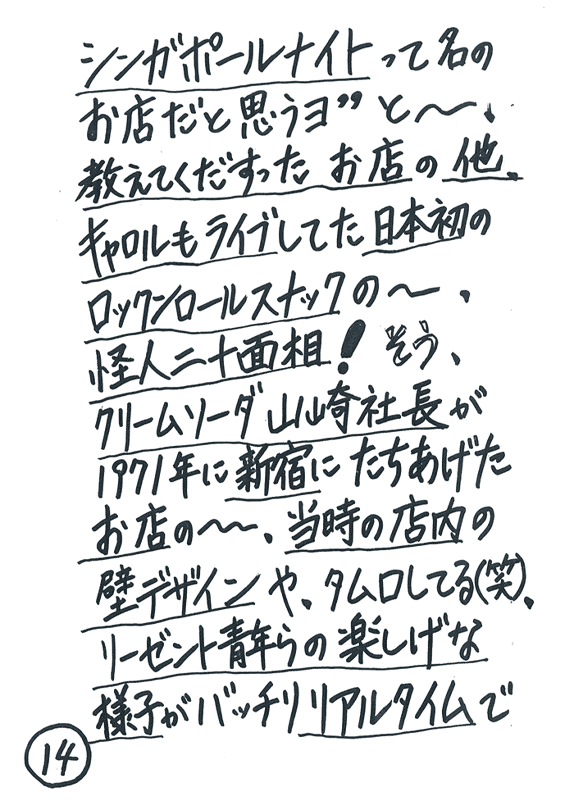 シンガポールナイトって名の
お店だと思うヨ”と〜、
教えてくだすった お店の他、
キャロルもライブしてた日本初の
ロックンロールスナックの〜、
怪人二十面相! そう、
クリームソーダ山崎社長が
1971年に新宿にたちあげた
お店の〜〜、当時の店内の
壁デザインや、タムロしてる(笑)、
リーゼント青年らの楽しげな
様子がバッチリリアルタイムで
14